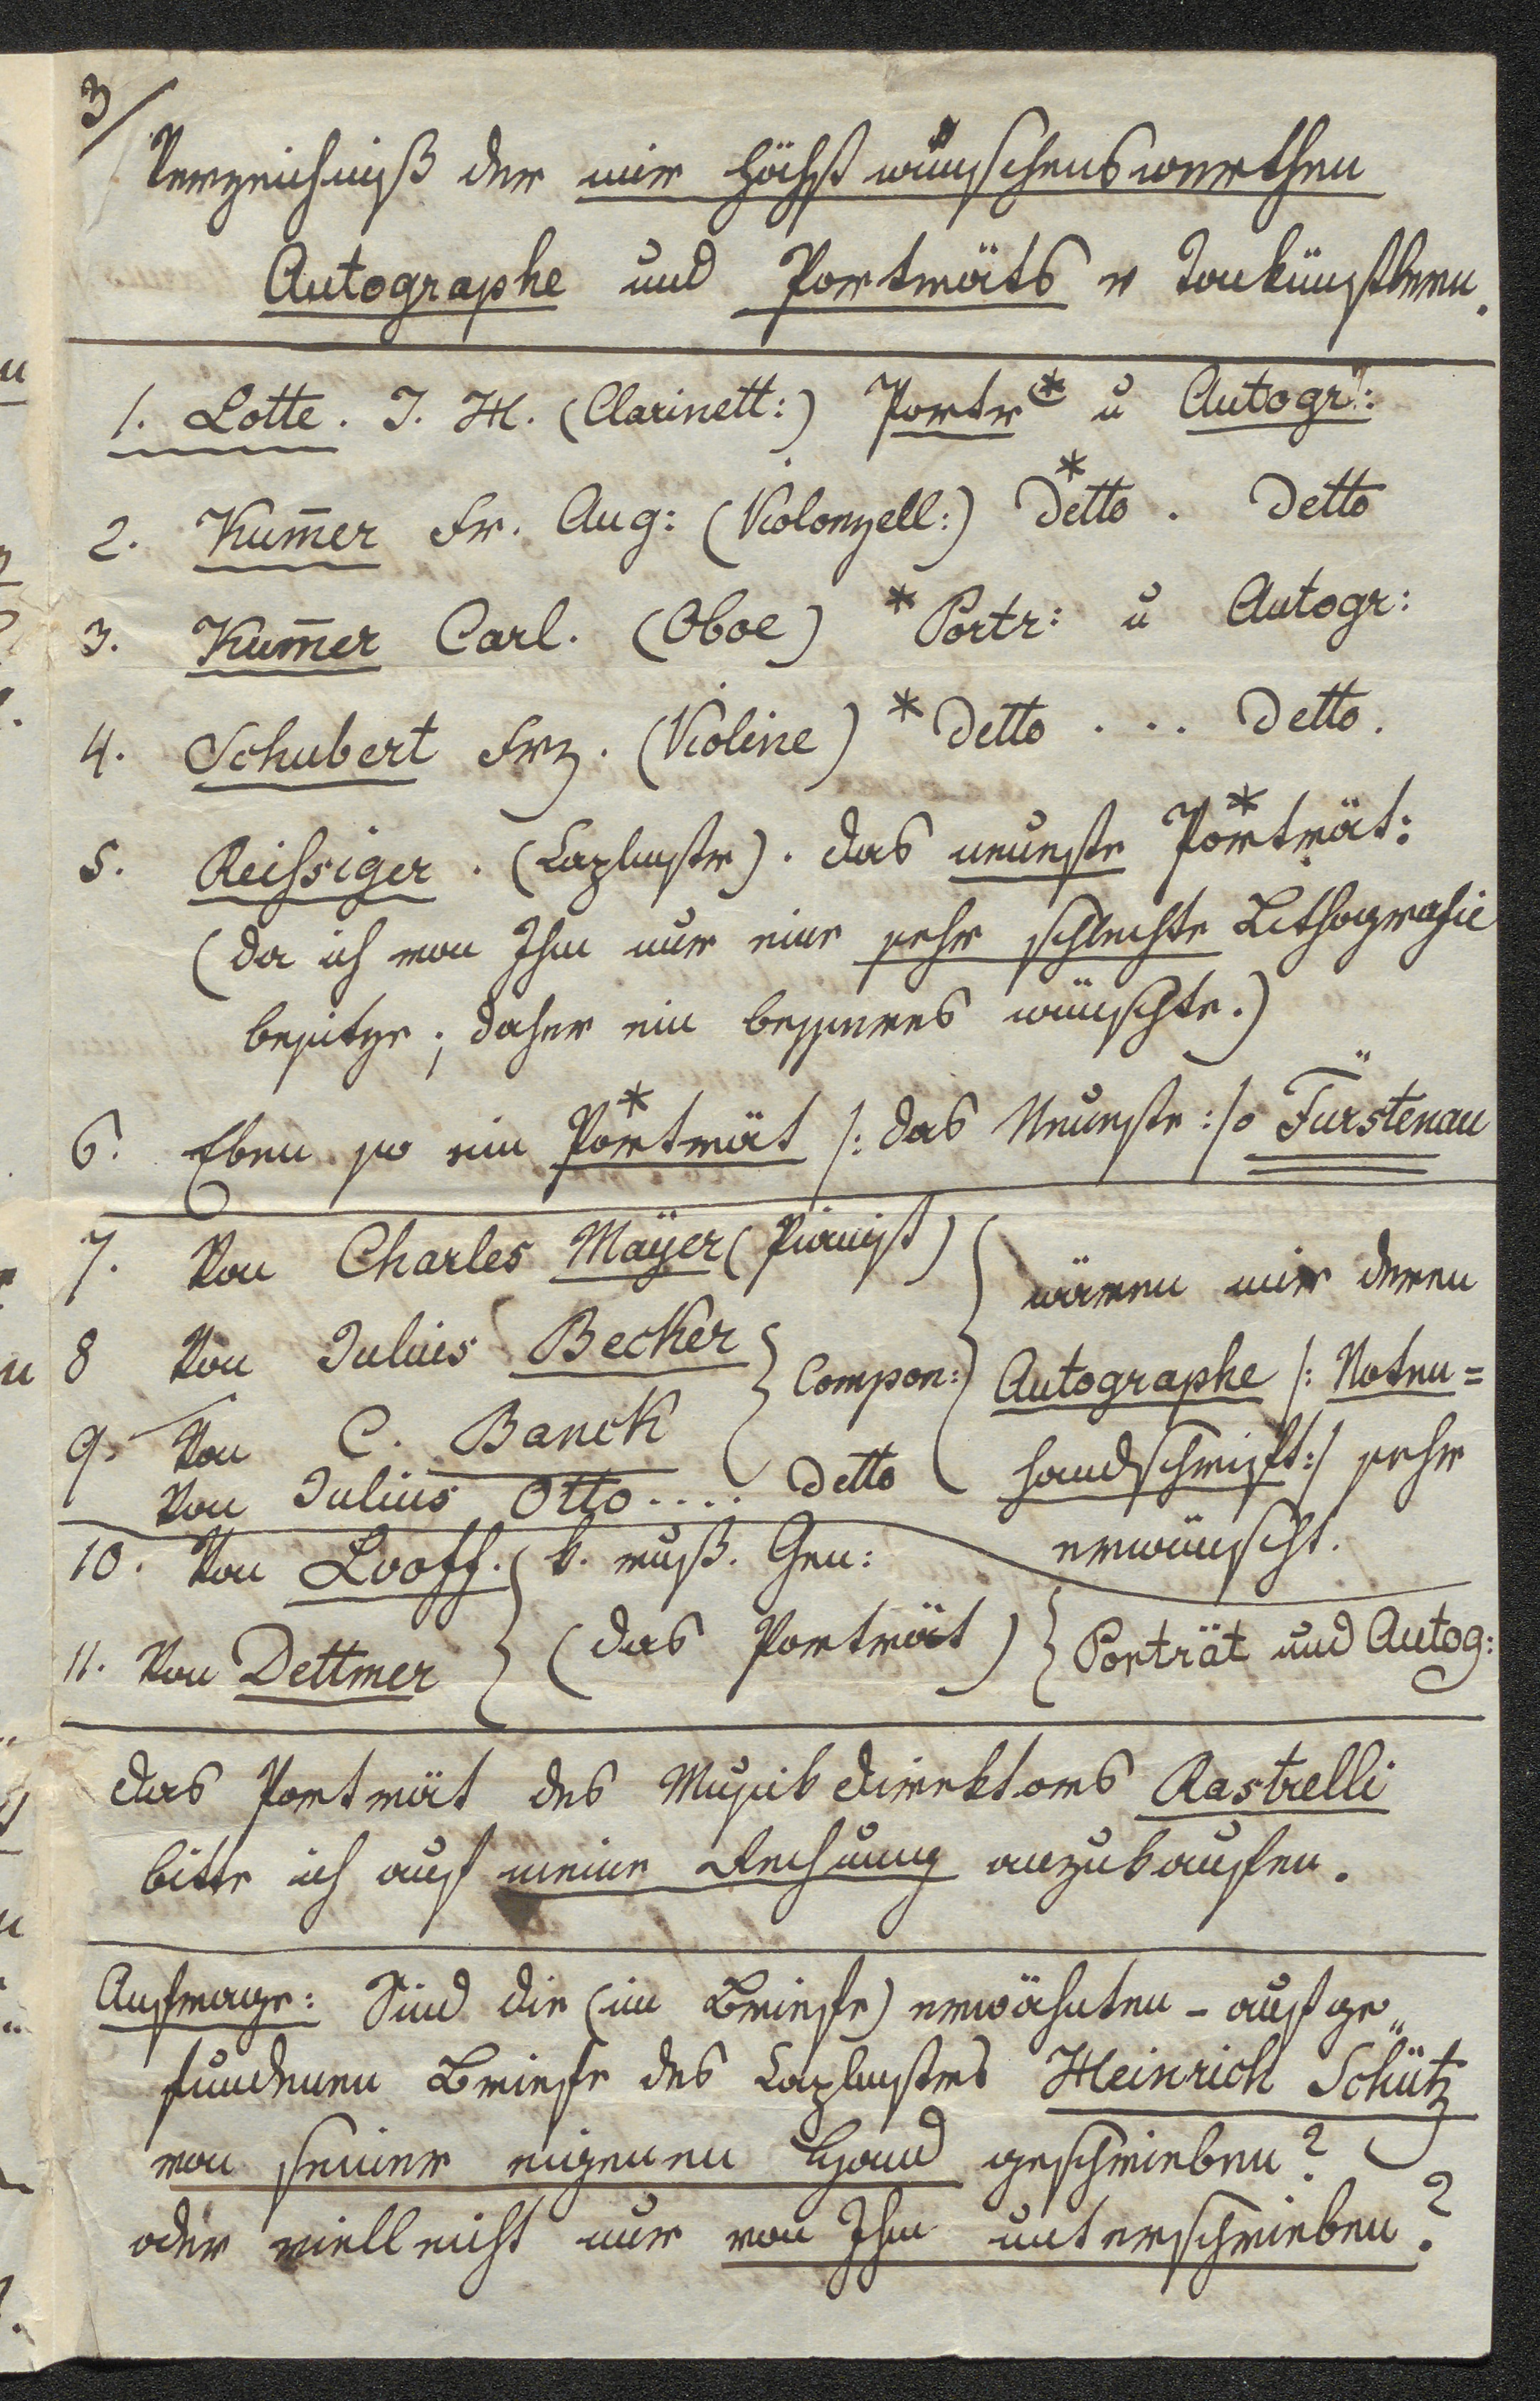 3/
Verzeichniß der mir höchst wünschenswerthen
Autographe und Porträts v Tonkünstlern.
1. Lotte. J. H. (Clarinett:) Portr * u Autogr:
2. Kum̄er Fr. Aug: (Violonzell:) * Detto. Detto
3. Kum̄er Carl. (Oboe) * Portr: u Autogr:
4. Schubert Frz. (Violine) * Detto . . . Detto.
5. Reissiger. (Caplmstr). das neueste * Porträt:
(da ich von Ihm nur eine sehr schlechte Lithografie
besitze; daher ein besseres wünschte.)
6. Eben so ein * Porträt /: das Neueste :/ v Fürstenau
7. Von Charles Mayer (Pianist) wären mir deren
8 Von Julius Becker Compon: Autographe /: Noten=
9. Von C. Banck handschrift :/ sehr
Von Julius Otto.... Detto erwünscht.
10. Von Lvoff. k. russ. Gen:
11. Von Dettmer (das Porträt) Porträt und Autog:
Das Porträt des Musikdirektors Rastrelli
bitte ich auf meine Rechnung anzukaufen.
Anfrage: Sind die (im Briefe) erwähnten – aufge„
fundenen Briefe des Caplmstrs Heinrich Schütz
von seiner eigenen Hand geschrieben?
oder vielleicht nur von Ihm unterschrieben?